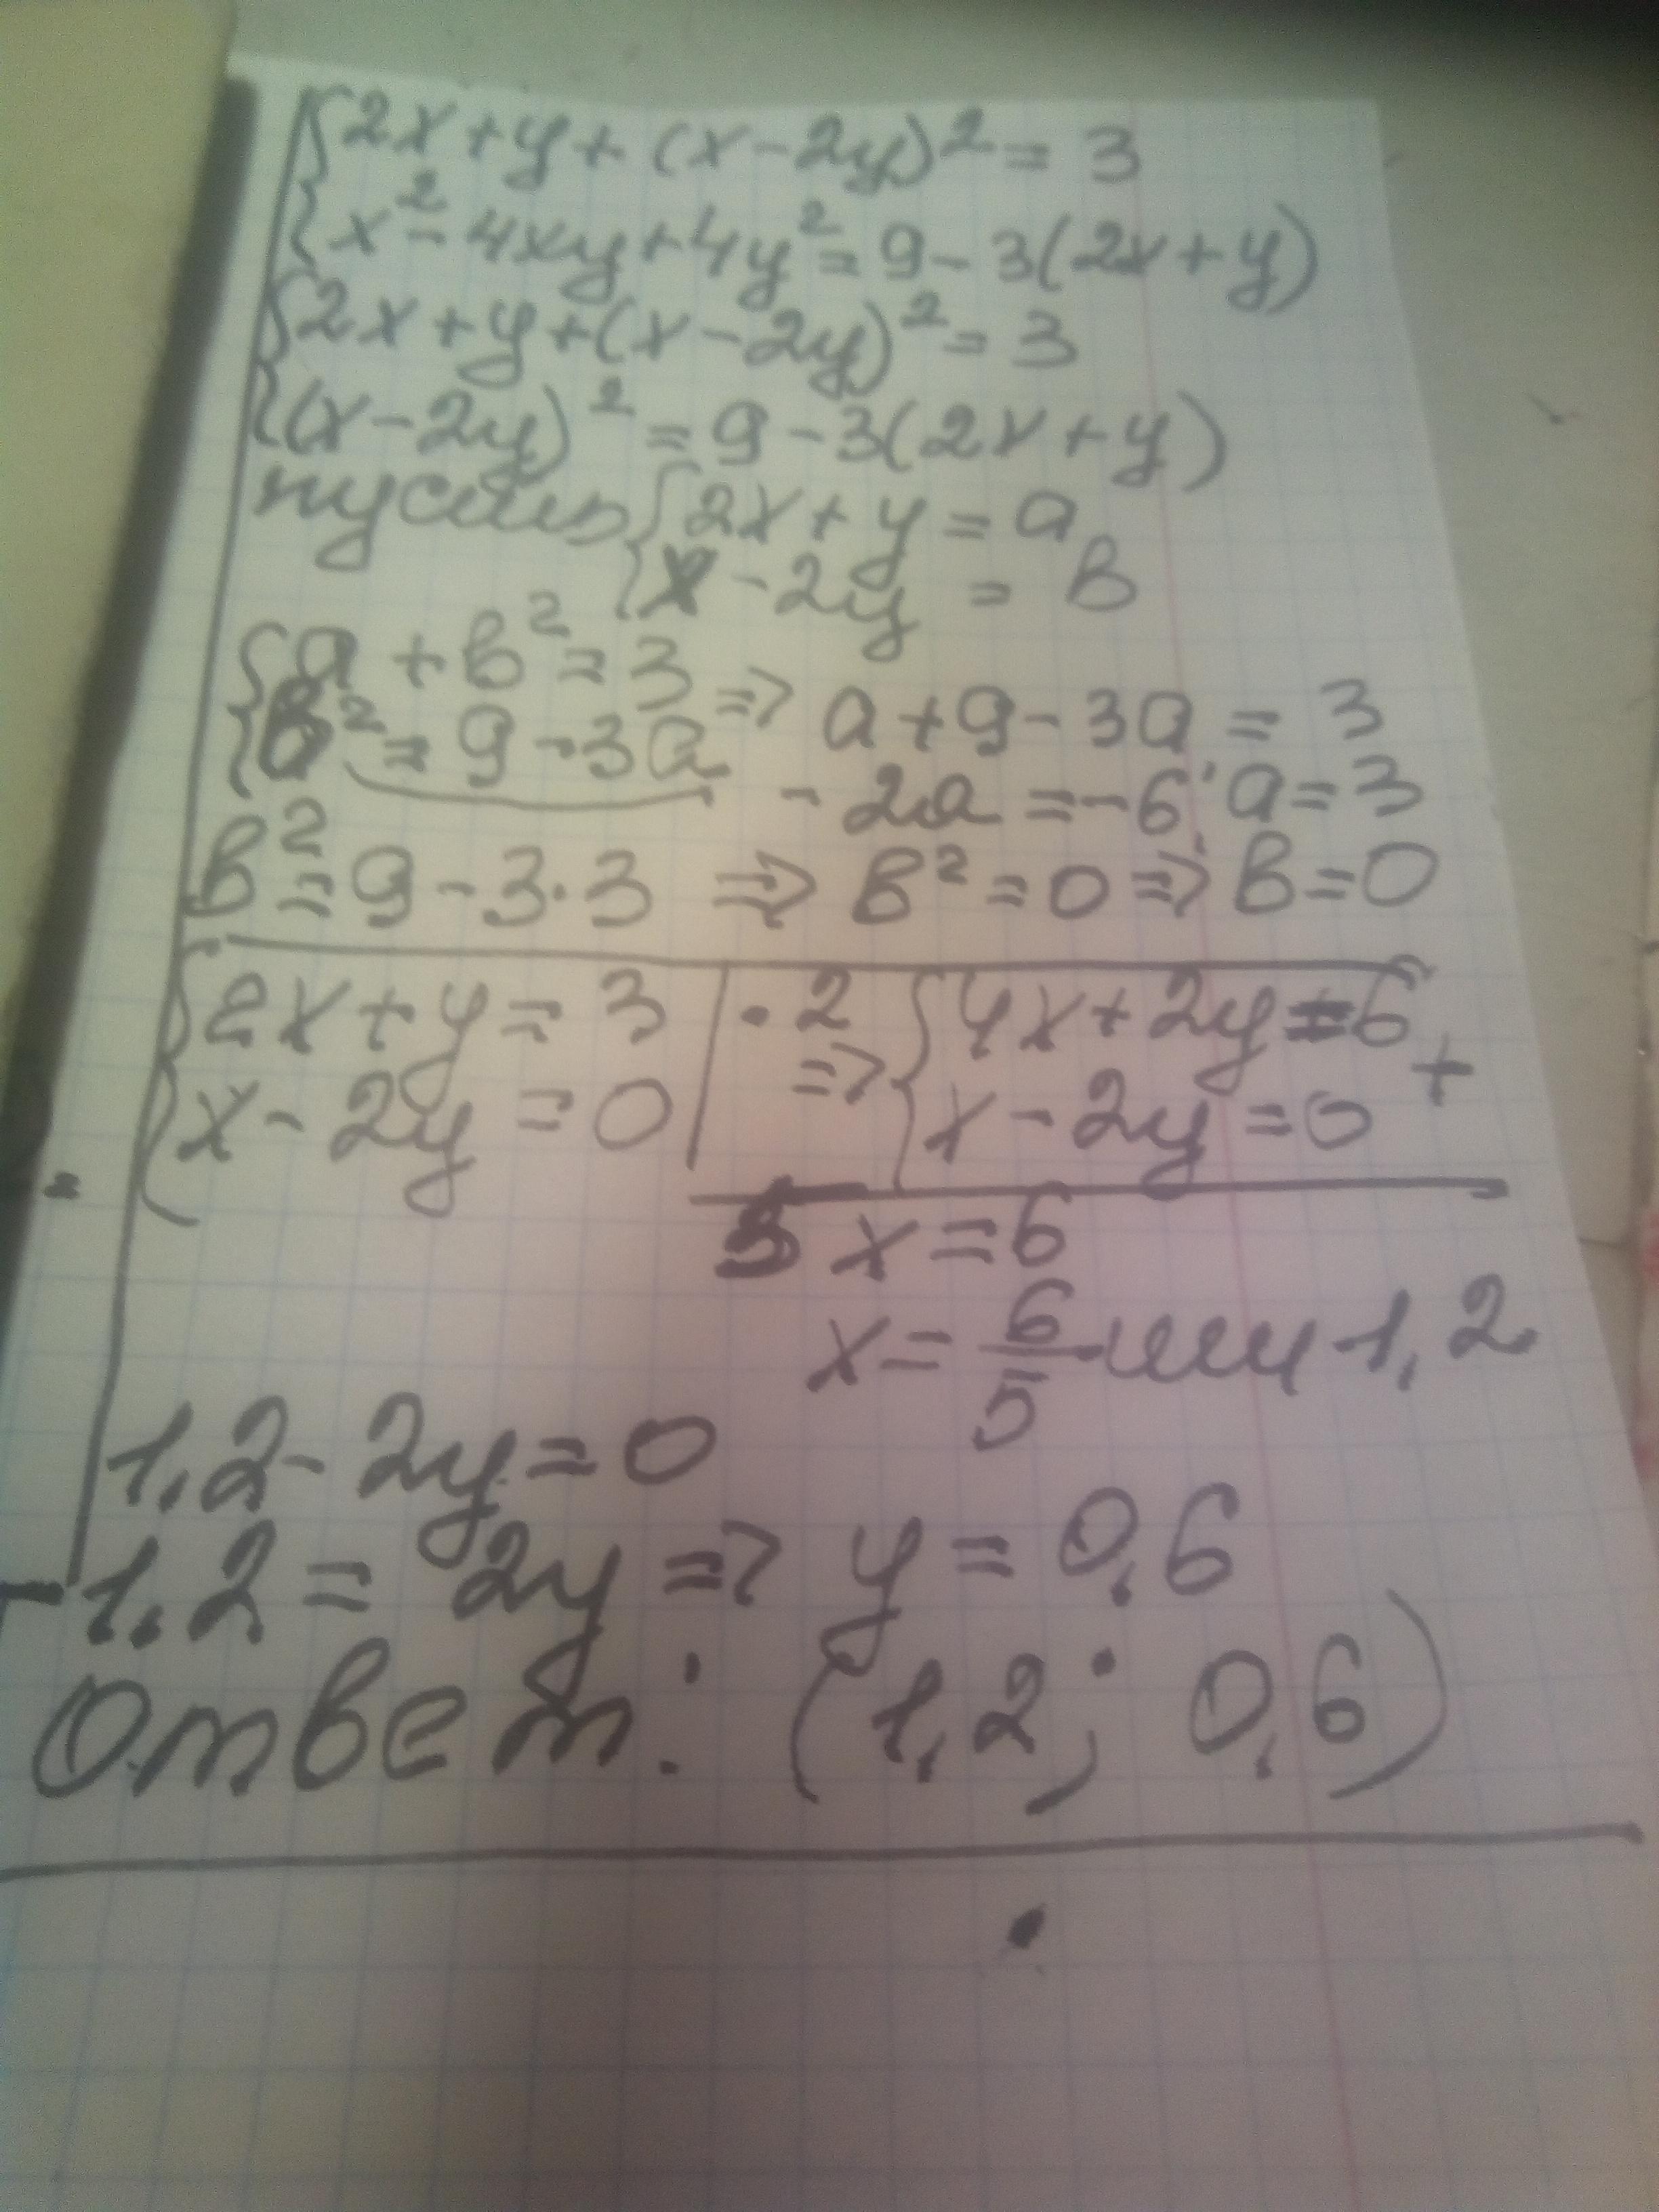 {2x+y+(x-2y)²=3
{x²-4xy+4y²=9-3(2x+y)
{2x+y+(x-2y)²=3
{(x-2y)²=9-3(2x+y)
пусть {2x+y=a
{x-2y=в
{a+в²=3 => a+9-3a=3
{в²=9-3a
-2a=-6; a=3
в²=9-3·3 => в²=0 => в=0
{2x+y=3 |·2 => {4x+2y=6 +
{x-2y=0 | {x-2y=0
5x=6
x=6/5 или 1,2
1,2-2y=0
1,2=2y => y=0,6
Ответ: (1,2; 0,6)